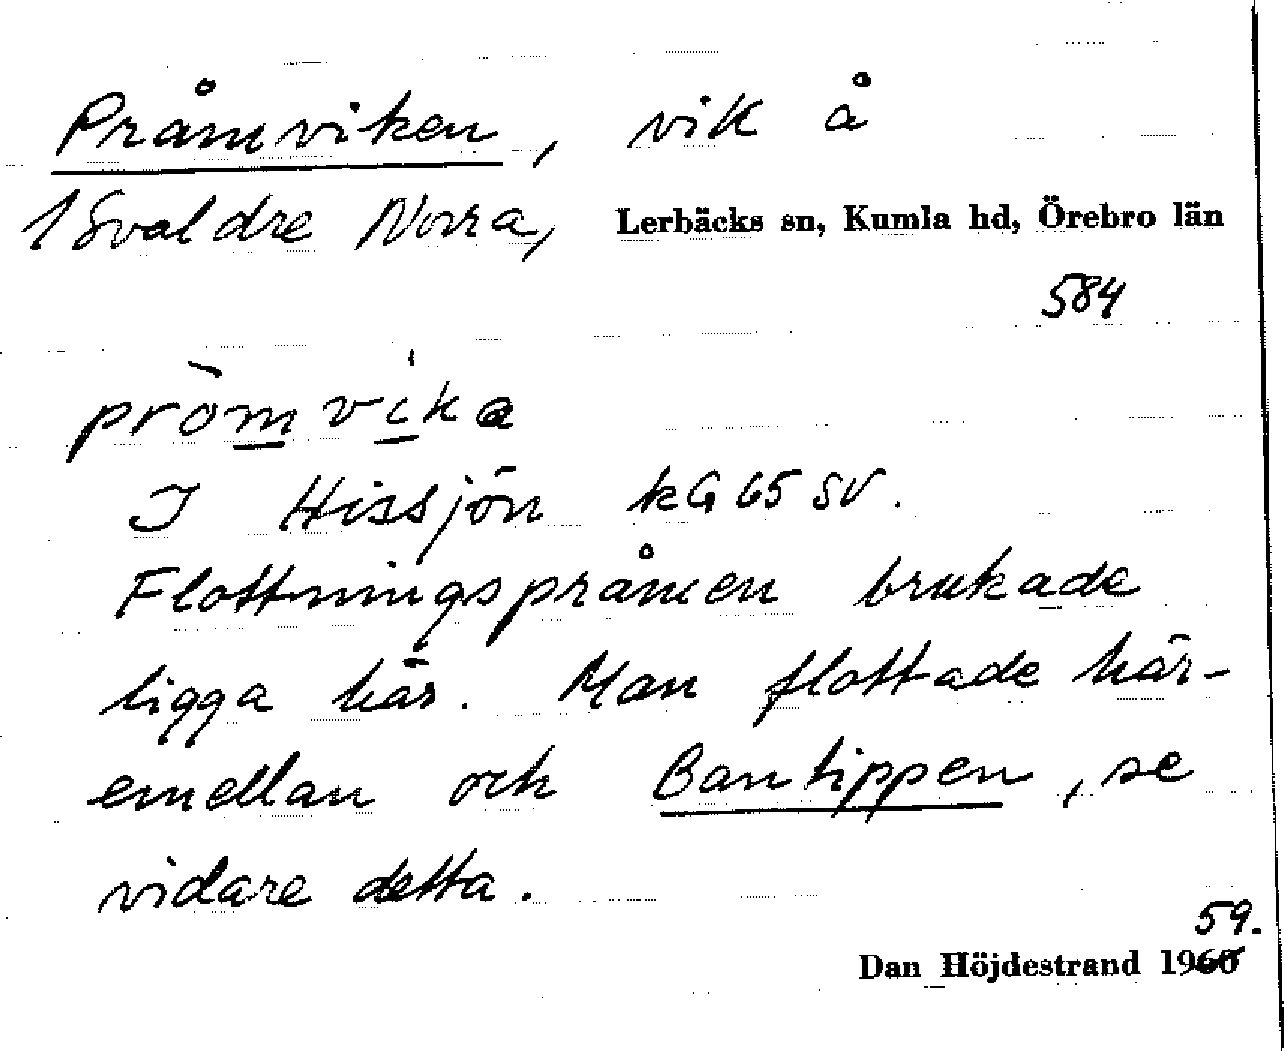 Pråmviken, vik å
1 Svaldre Norra, Lerbäcks sn, Kumla hd, Örebro län
584
pròmvika
I Hissjön kG65SV.
Flottningspråmen brukade
ligga här. Man flottade här-
emellan och Bantippen, se
vidare detta.
59.
Dan Höjdestrand 1960